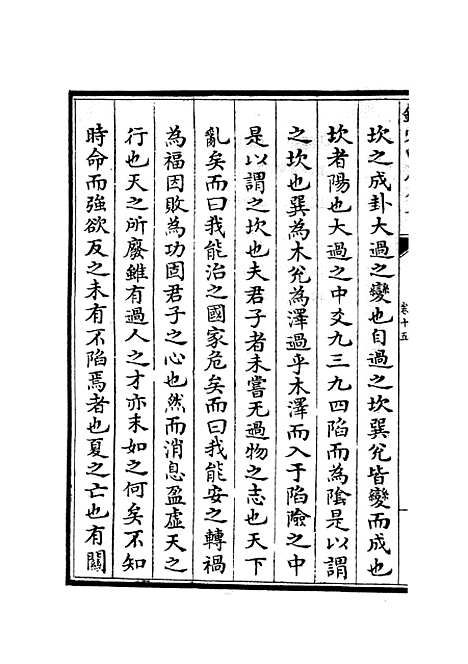 卷十五
坎之成卦大過之變也自過之坎巽兊皆變而成也
坎者陽也大過之中爻九三九四陷而為陰是以謂
之坎也巽為木兊為澤過乎木澤而入于陷險之中
是以謂之坎也夫君子者未嘗无過物之志也天下
亂矣而曰我能治之國家危矣而曰我能安之轉禍
為福因敗為功固君子之心也然而消息盈虛天之
行也天之所廢雖有過人之才亦末如之何矣不知
時命而強欲反之未有不陷焉者也夏之亡也有關